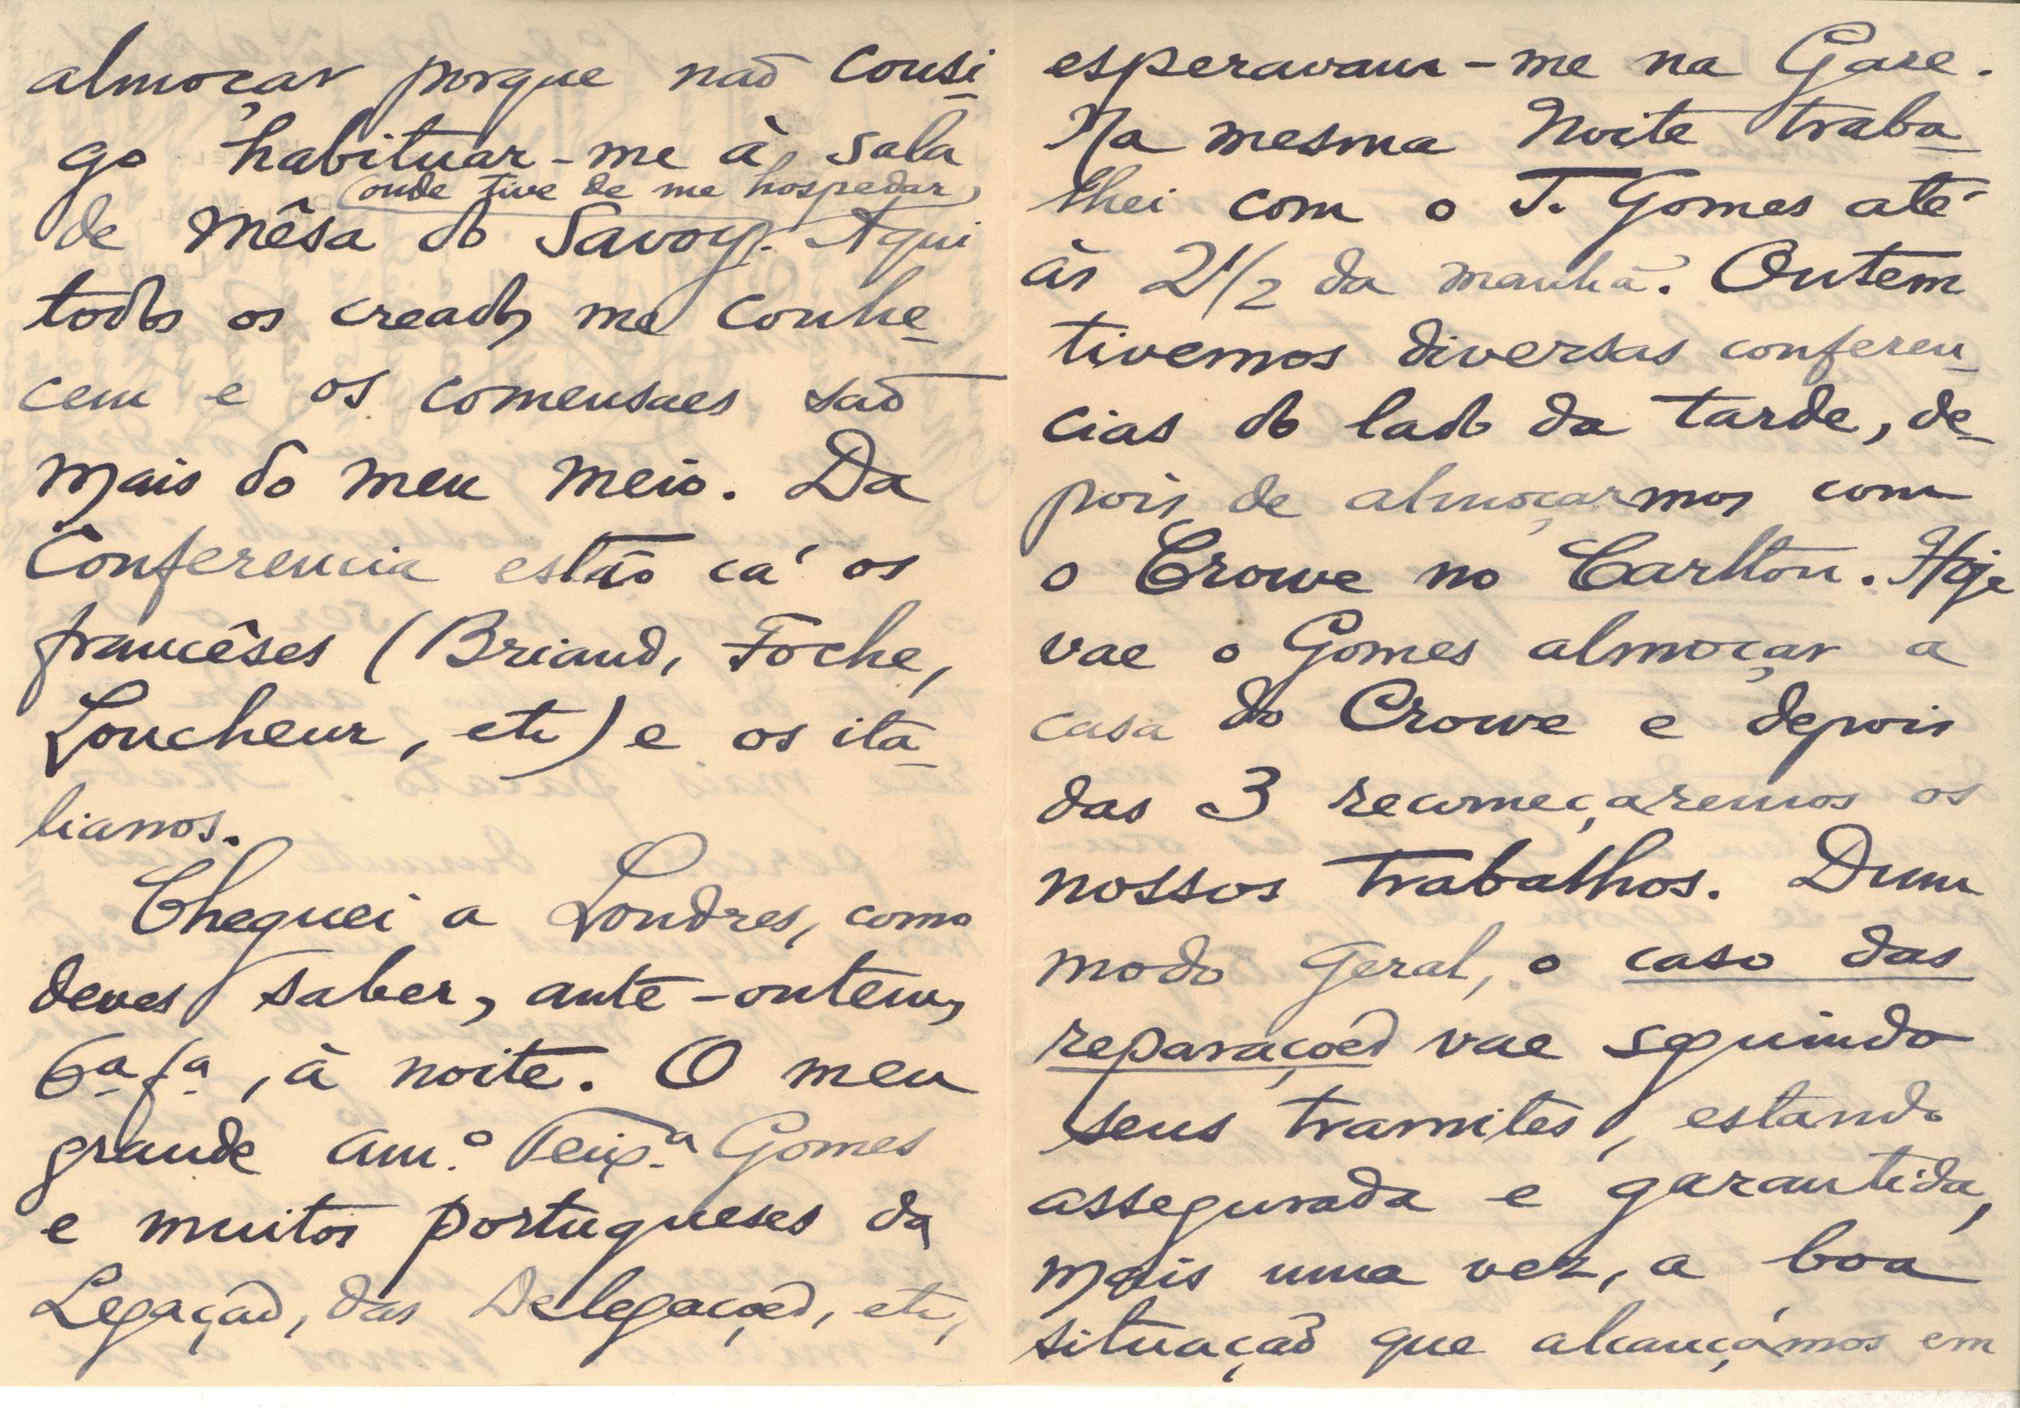 almoçar porque não consi-
go habituar-me à sala
(onde tive de me hospedar)
de mêsa do Savoy. Aqui
todos os creados me conhe-
cem e os comensaes são
mais do meu meio. Da
Conferencia estão cá os
francêses (Briand, Foche,
Loucheur, etc) e os ita-
lianos.
Cheguei a Londres, como
deves saber, ante-ontem,
6ª fª, à noite. O meu
grande am.º Teixª Gomes
e muitos portugueses da
Legação, das Delegações, etc,
esperavam-me na Gare.
Na mesma noite traba-
lhei com o T. Gomes até
às 2 1/2 da manhã. Ontem
tivemos diversas conferen-
cias do lado da tarde, de-
pois de almoçarmos com
o Crowe no Carlton. Hoje
vae o Gomes almoçar a
casa do Crowe e depois
das 3 recomeçaremos os
nossos trabalhos. Dum
modo geral, o caso das
reparações vae seguindo
seus tramites, estando
assegurada e garantida,
mais uma vez, a boa
situação que alcançámos em